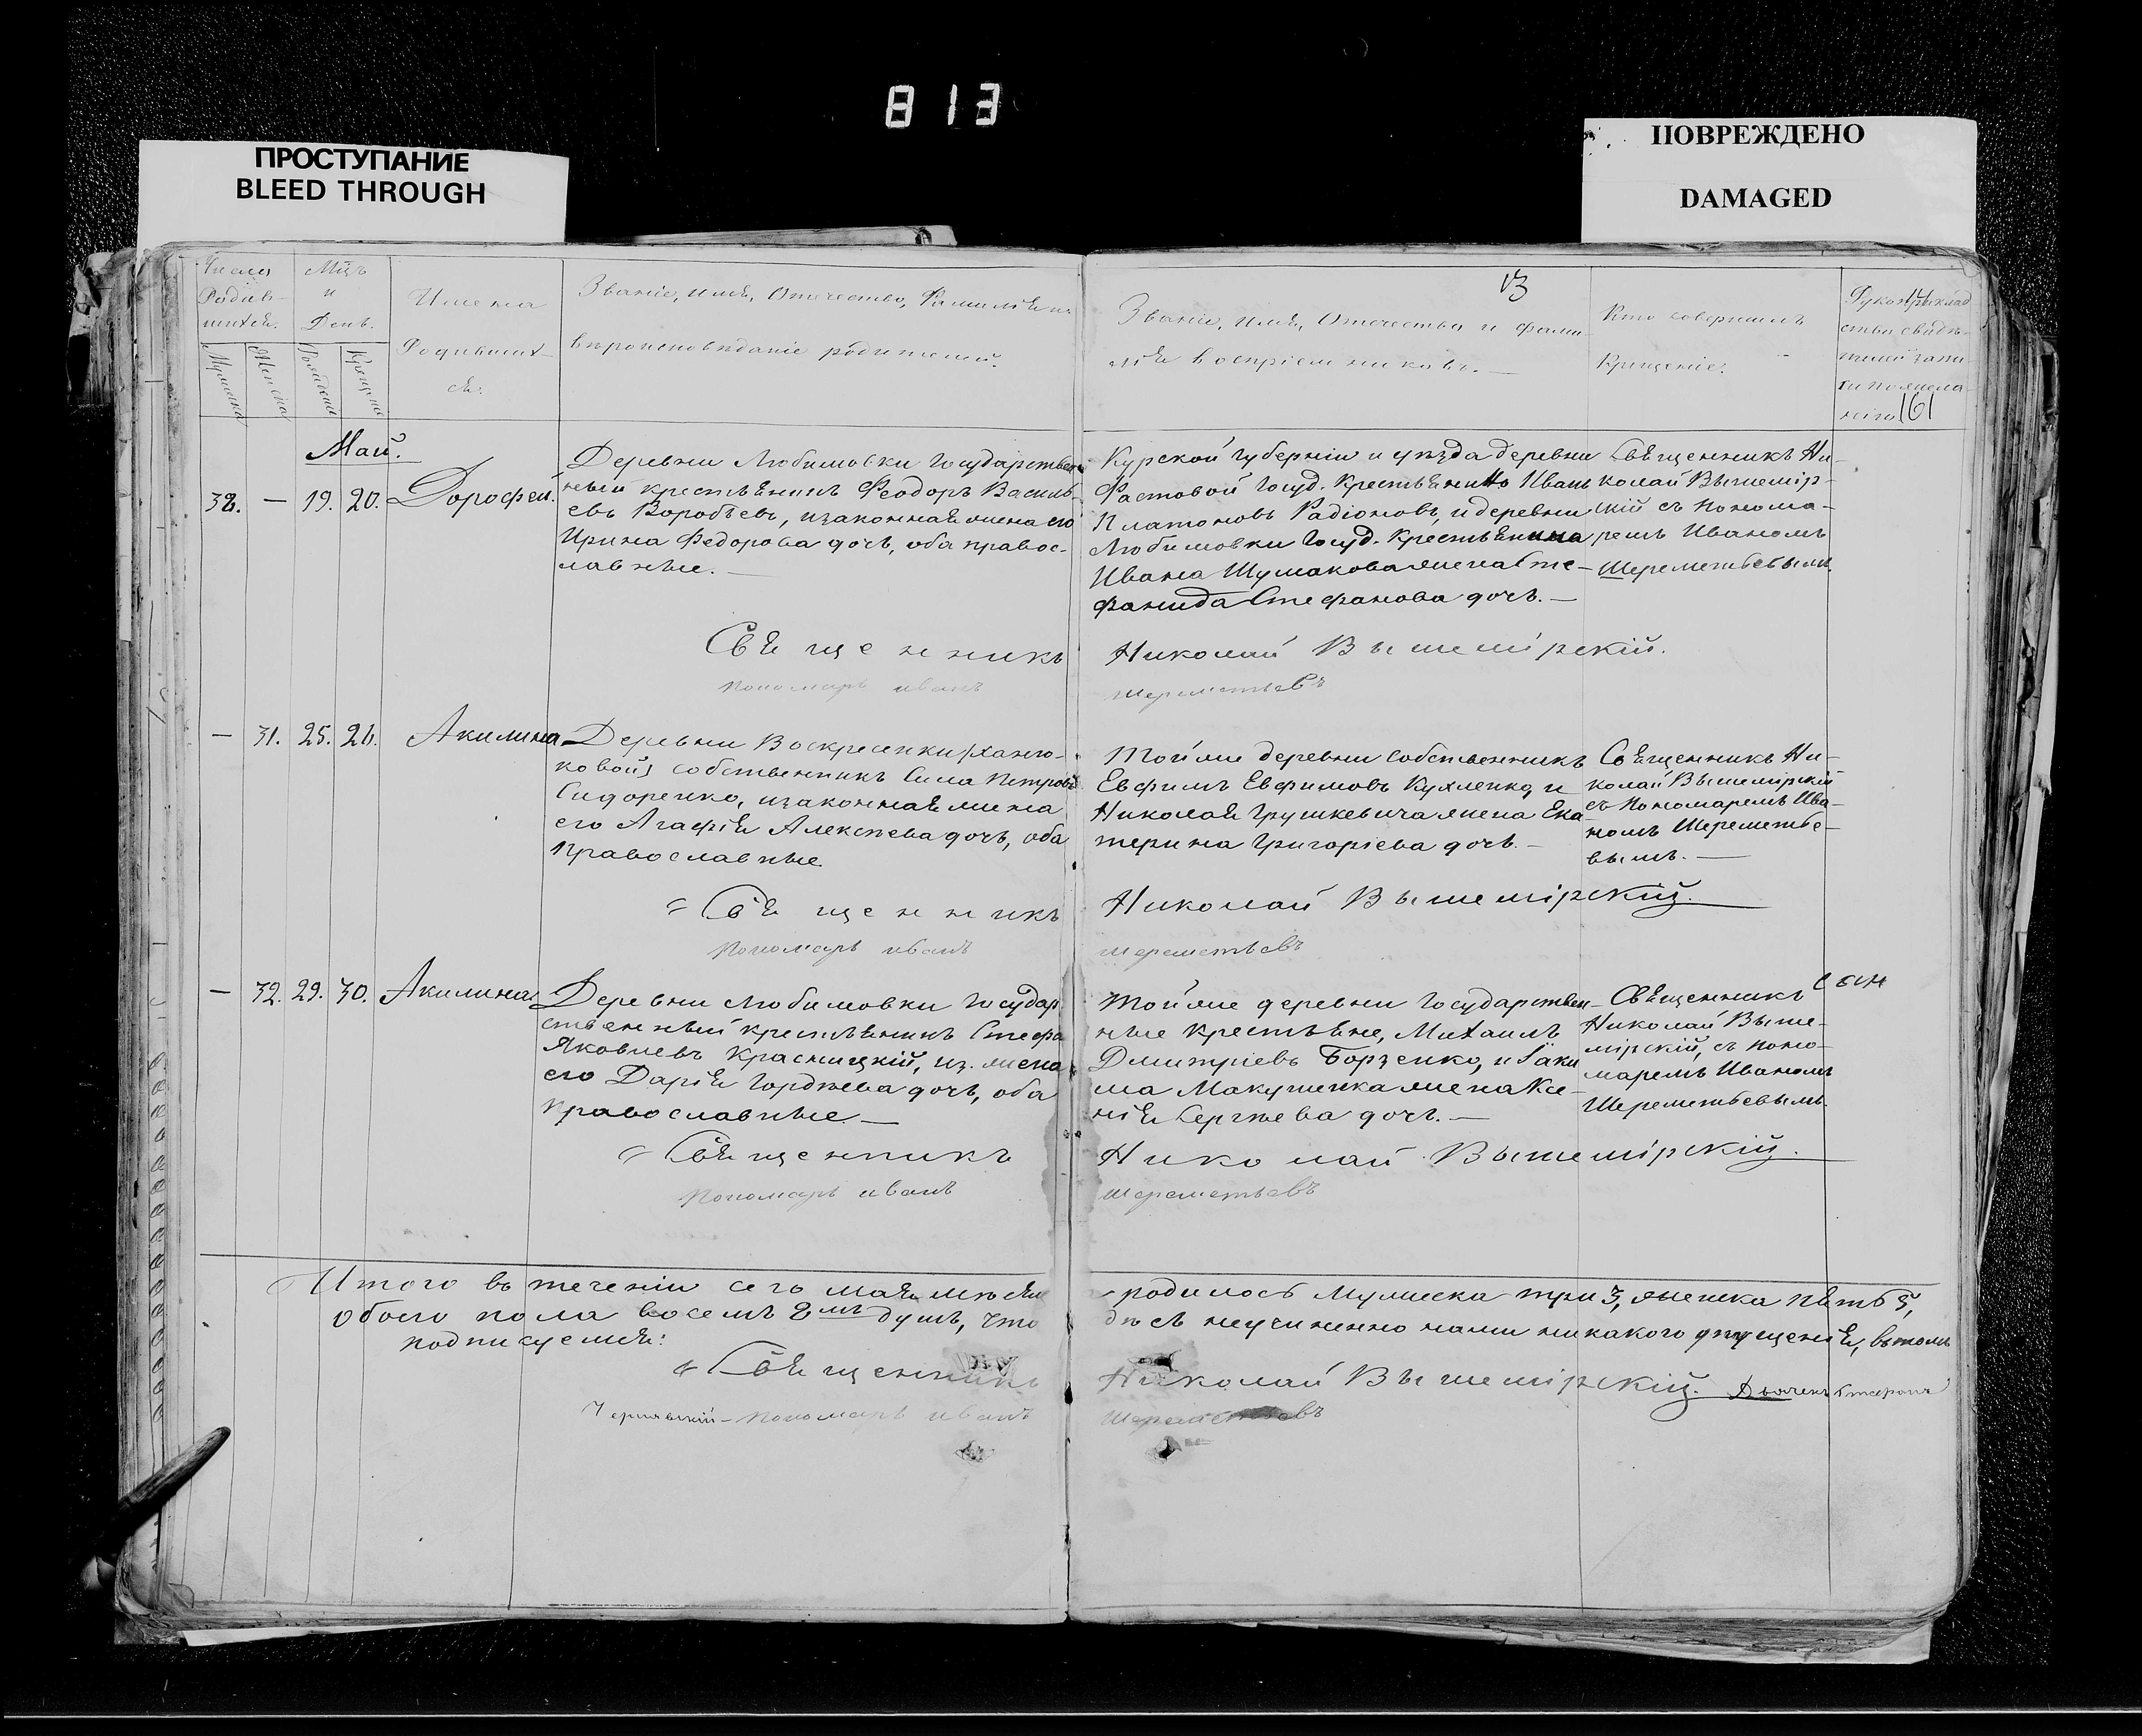 813
ПРОСТУПАНИЕ
BLEED THROUGH
ПОВРЕЖДЕНО
DAMAGED
Число Родив-шихся.
Мцъ и День.
Имена Родившихся.
Званіе, имя, Отечество, Фамилія и
вѣроисповѣданіе родителей.
13
Званіе, имя, Отечество и фами-
лія воспріемниковъ.—
Кто совершилъ
Крещеніе.
161
Май.
38. — 19. 20. Дорофей.
Деревни Любимовки Государствен-
ный крестьянинъ Феодоръ Василь-
евъ Воробьевъ, и законная жена его
Ирина Федорова дочь, оба правос-
лавные.—
Курской губерніи и уѣзда деревни
Фастовой Госуд. Крестьянинъ Иванъ
Платоновъ Радіоновъ, и деревни
Любимовки Госуд. Крестьянина
Ивана Шумакова жена Сте-
фанида Стефанова дочь.—
Священникъ Ни-
колай Вышемір-
скій съ понома-
ремъ Иваномъ
Шереметьевымъ.
Священникъ Николай Вышемірскій.
пономарь иванъ шереметьевъ
— 31. 25. 26. Акилина
Деревни Воскресенки (Ханю-
ковой) собственникъ Сила Петровъ
Сидоренко, и законная жена
его Агафія Алексѣева дочь, оба
православные.
Той же деревни собственникъ
Евфимъ Евфимовъ Кухленко, и
Николая Грушкевича жена Ека-
терина Григоріева дочь.—
Священникъ Ни-
колай Вышемірскій
съ Пономаремъ Ива-
номъ Шереметье-
вымъ.—
Священникъ Николай Вышемірскій.
пономарь иванъ шереметьевъ
— 32. 29. 30. Акилина
Деревни Любимовки Государ-
ственный крестьянинъ Стефа
Яковлевъ Красницкій, и з. жена
его Дарія Гордѣева дочь, оба
православные.—
Той же деревни Государствен-
ные крестьяне, Михаилъ
Дмитріевъ Борзенко, и Іаки
ма Макушенка жена Ксе-
нія Сергѣева дочь.—
Священникъ
Николай Выше-
мірскій, съ поно-
маремъ Иваномъ
Шереметьевымъ.
Священникъ Николай Вышемірскій.
пономарь иванъ шереметьевъ
Итого въ теченіи сего мая мѣся родилось Мужеска три 3, женска пять 5,
обоего пола восемъ 8мъ душъ, что здѣсь неучиненно нами никакого упущенія, въ томъ
подписуемся:
Священникъ Николай Вышемірскій. Дьячекъ
Чернявскій — пономарь иванъ шереметьевъ